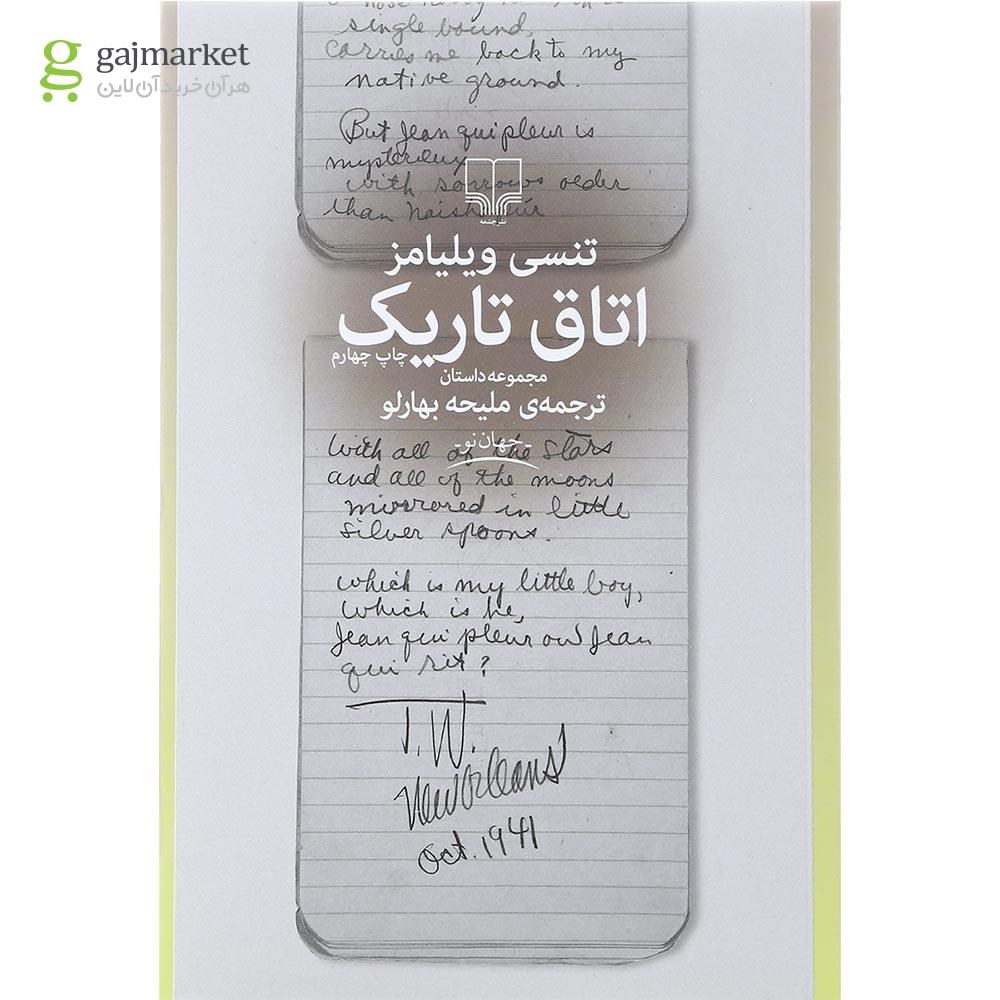 gajmarket
هر آن خرید آن لاین
single bound,
carries me back to my
native ground.
But Jean qui pleur is
with sorrows older
than
نشرچشمه
تنسی ویلیامز
اتاق تاریک
چاپ چهارم
مجموعه داستان
ترجمه‌ی ملیحه بهارلو
-جهان نو-
with all of the stars
and all of the moons
mirrored in little
silver spoons.
which is my little boy,
which is he,
Jean qui pleur ou Jean
qui rit?
T. W.
New Orleans
Oct. 1941